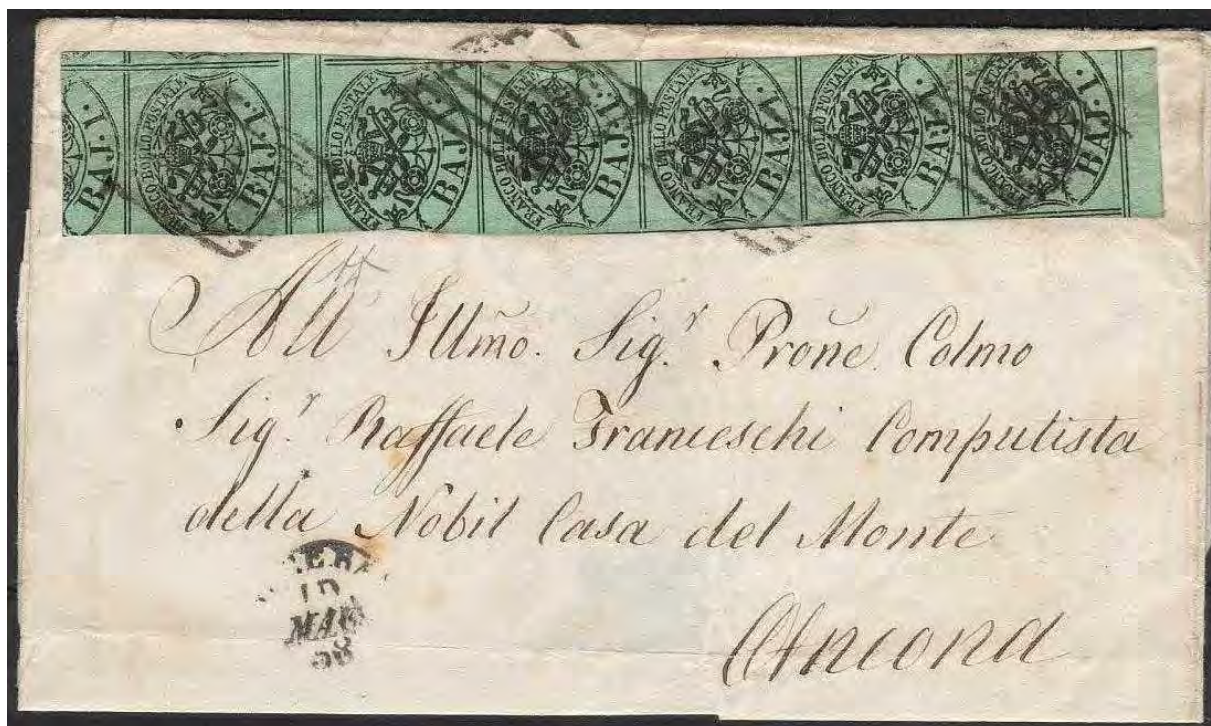 BAJ. 1.
FRANCO BOLLO POSTALE BAJ. 1.
FRANCO BOLLO POSTALE BAJ. 1.
FRANCO BOLLO POSTALE BAJ. 1.
FRANCO BOLLO POSTALE BAJ. 1.
FRANCO BOLLO POSTALE BAJ. 1.
FRANCO BOLLO POSTALE BAJ. 1.
All' Illm̃o. Sig.r Prõne. Colmo
Sig.r Raffaele Franceschi Computista
della Nobil Casa del Monte
Ancona
MAG
58